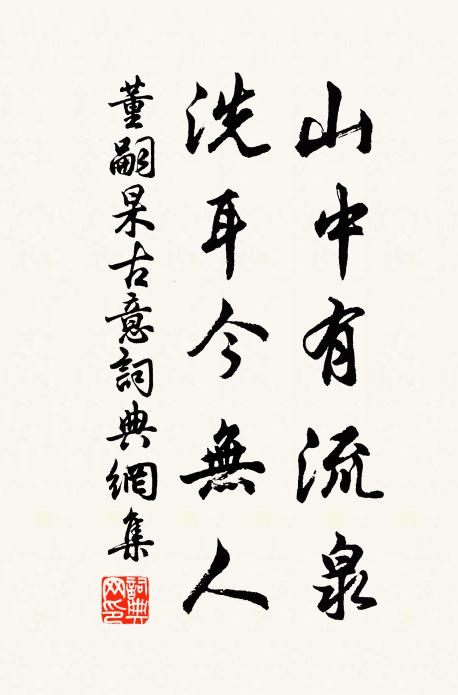 山中有流泉
洗耳今無人
董嗣杲古意詞典網集
詞典網印